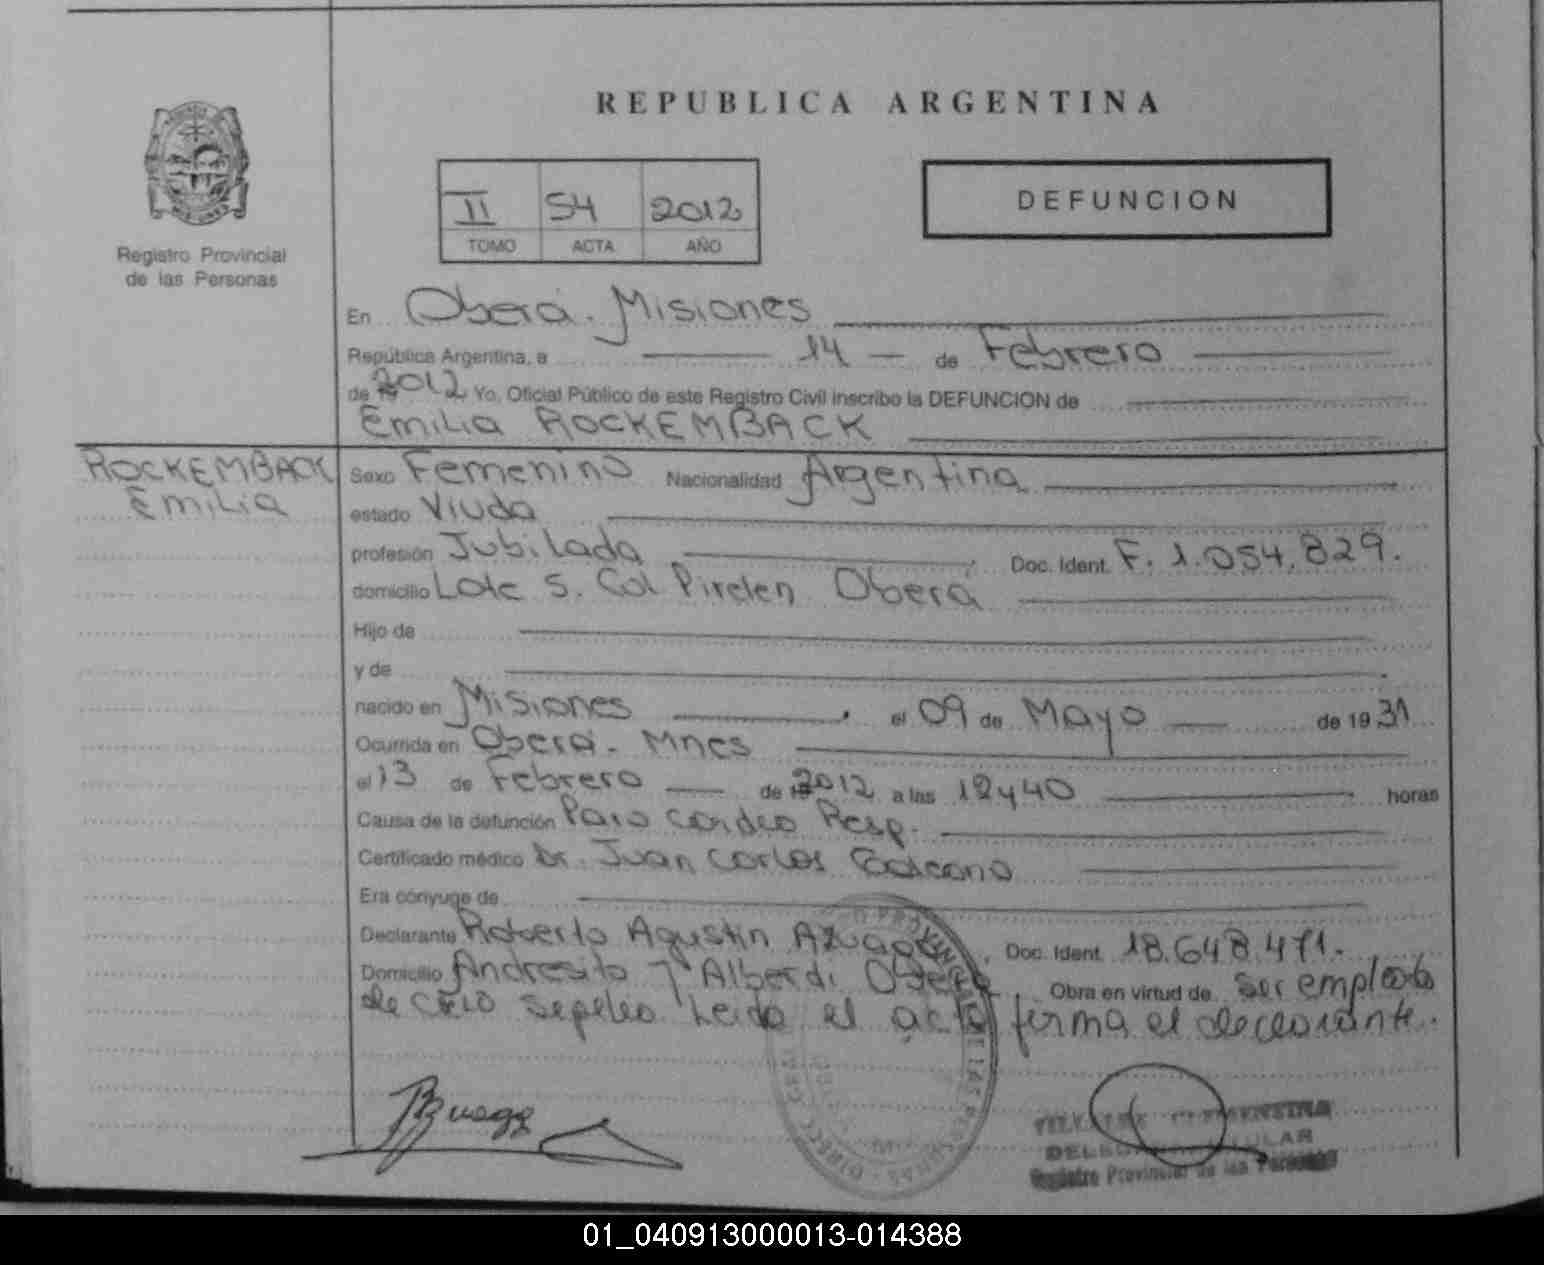 REPUBLICA ARGENTINA
II 54 2012
TOMO ACTA AÑO
DEFUNCION
Registro Provincial
de las Personas
En Oberá. Misiones
República Argentina, a 14 de Febrero
de 2012 Yo, Oficial Público de este Registro Civil inscribo la DEFUNCION de
Emilia ROCKEMBACK
ROCKEMBACK
Emilia
Sexo Femenino Nacionalidad Argentina
estado Viuda
profesión Jubilada Doc. Ident. F. 1.054.829.
domicilio Lote 5. Col Pirelen Oberá
Hijo de
y de
nacido en Misiones, el 09 de Mayo de 1931
Ocurrida en Oberá. Mnes
el 13 de Febrero de 2012 a las 12y40 horas
Causa de la defunción Paro Cardeo Resp.
Certificado médico Dr. Juan Carlos
Era cónyuge de
Declarante Roberto Agustin Doc. Ident. 18.648.471.
Domicilio Andresito y Alberdi Oberá Obra en virtud de ser empleado
de sepelio Leida el acta firma el declarante.
DELEGADO TITULAR
Registro Provincial de las Personas
01_040913000013-014388